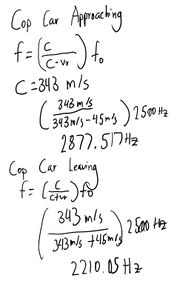 Cop Car Approaching
f=(c/c-vr)fo
C=343 m/s
(343m/s/343m/s-45m/s)2500Hz
2877.517Hz
Cop Car Leaving
f=(c/c+vr)fo
(343 m/s/343m/s+45m/s)2500Hz
2210.05 Hz